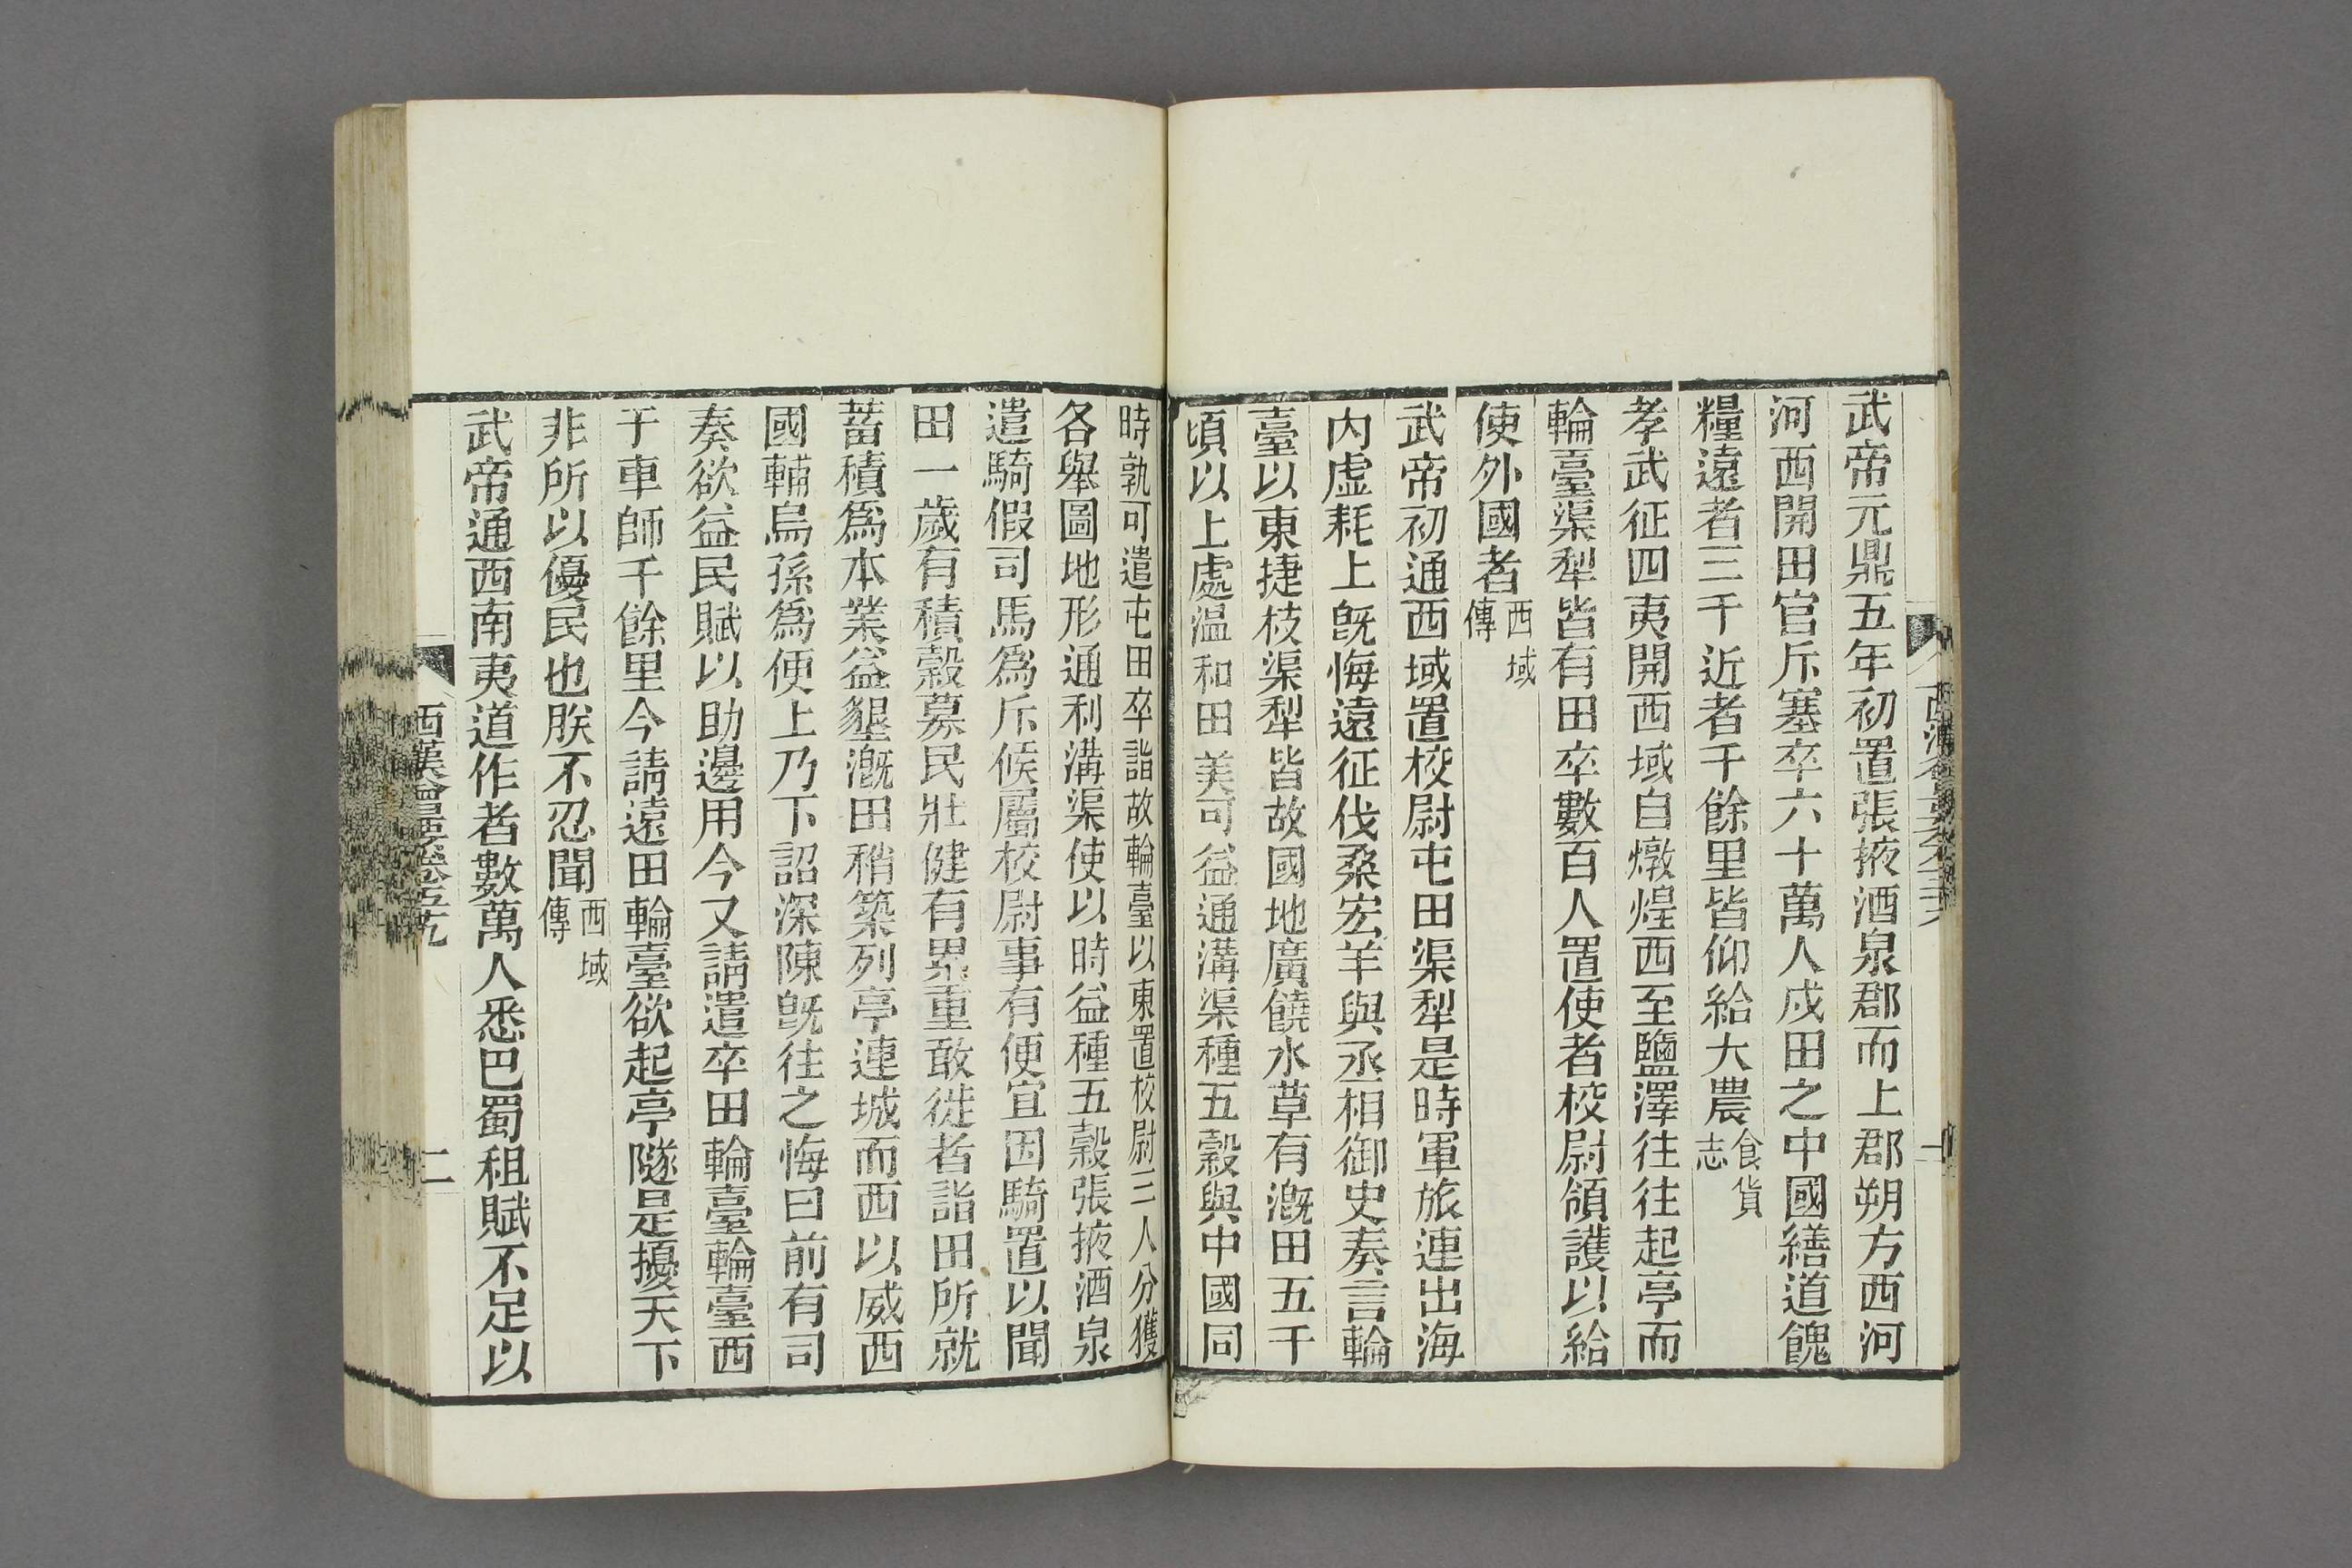 武帝元鼎五年初置張掖酒泉郡而上郡朔方西河
河西開田官斥塞卒六十萬人戍田之中國繕道餽
糧遠者三千近者千餘里皆仰給大農食貨志
孝武征四夷開西域自燉煌西至鹽澤往往起亭而
輪臺渠犁皆有田卒數百人置使者校尉領護以給
使外國者西域傳
武帝初通西域置校尉屯田渠犁是時軍旅連出海
內虛耗上旣悔遠征伐桑宏羊與丞相御史奏言輪
臺以東捷枝渠犁皆故國地廣饒水草有漑田五千
頃以上處温和田美可益通溝渠種五穀與中國同
時孰可遣屯田卒詣故輪臺以東置校尉三人分獲
各舉圖地形通利溝渠使以時益種五穀張掖酒泉
遣騎假司馬爲斥候屬校尉事有便宜因騎置以聞
田一歲有積穀募民壯健有累重敢徙者詣田所就
蓄積爲本業益墾漑田稍築列亭連城而西以威西
國輔烏孫爲便上乃下詔深陳旣往之悔曰前有司
奏欲益民賦以助邊用今又請遣卒田輪臺輪臺西
于車師千餘里今請遠田輪臺欲起亭隧是擾天下
非所以優民也朕不忍聞西域傳
武帝通西南夷道作者數萬人悉巴蜀租賦不足以
西漢會要卷五九
二